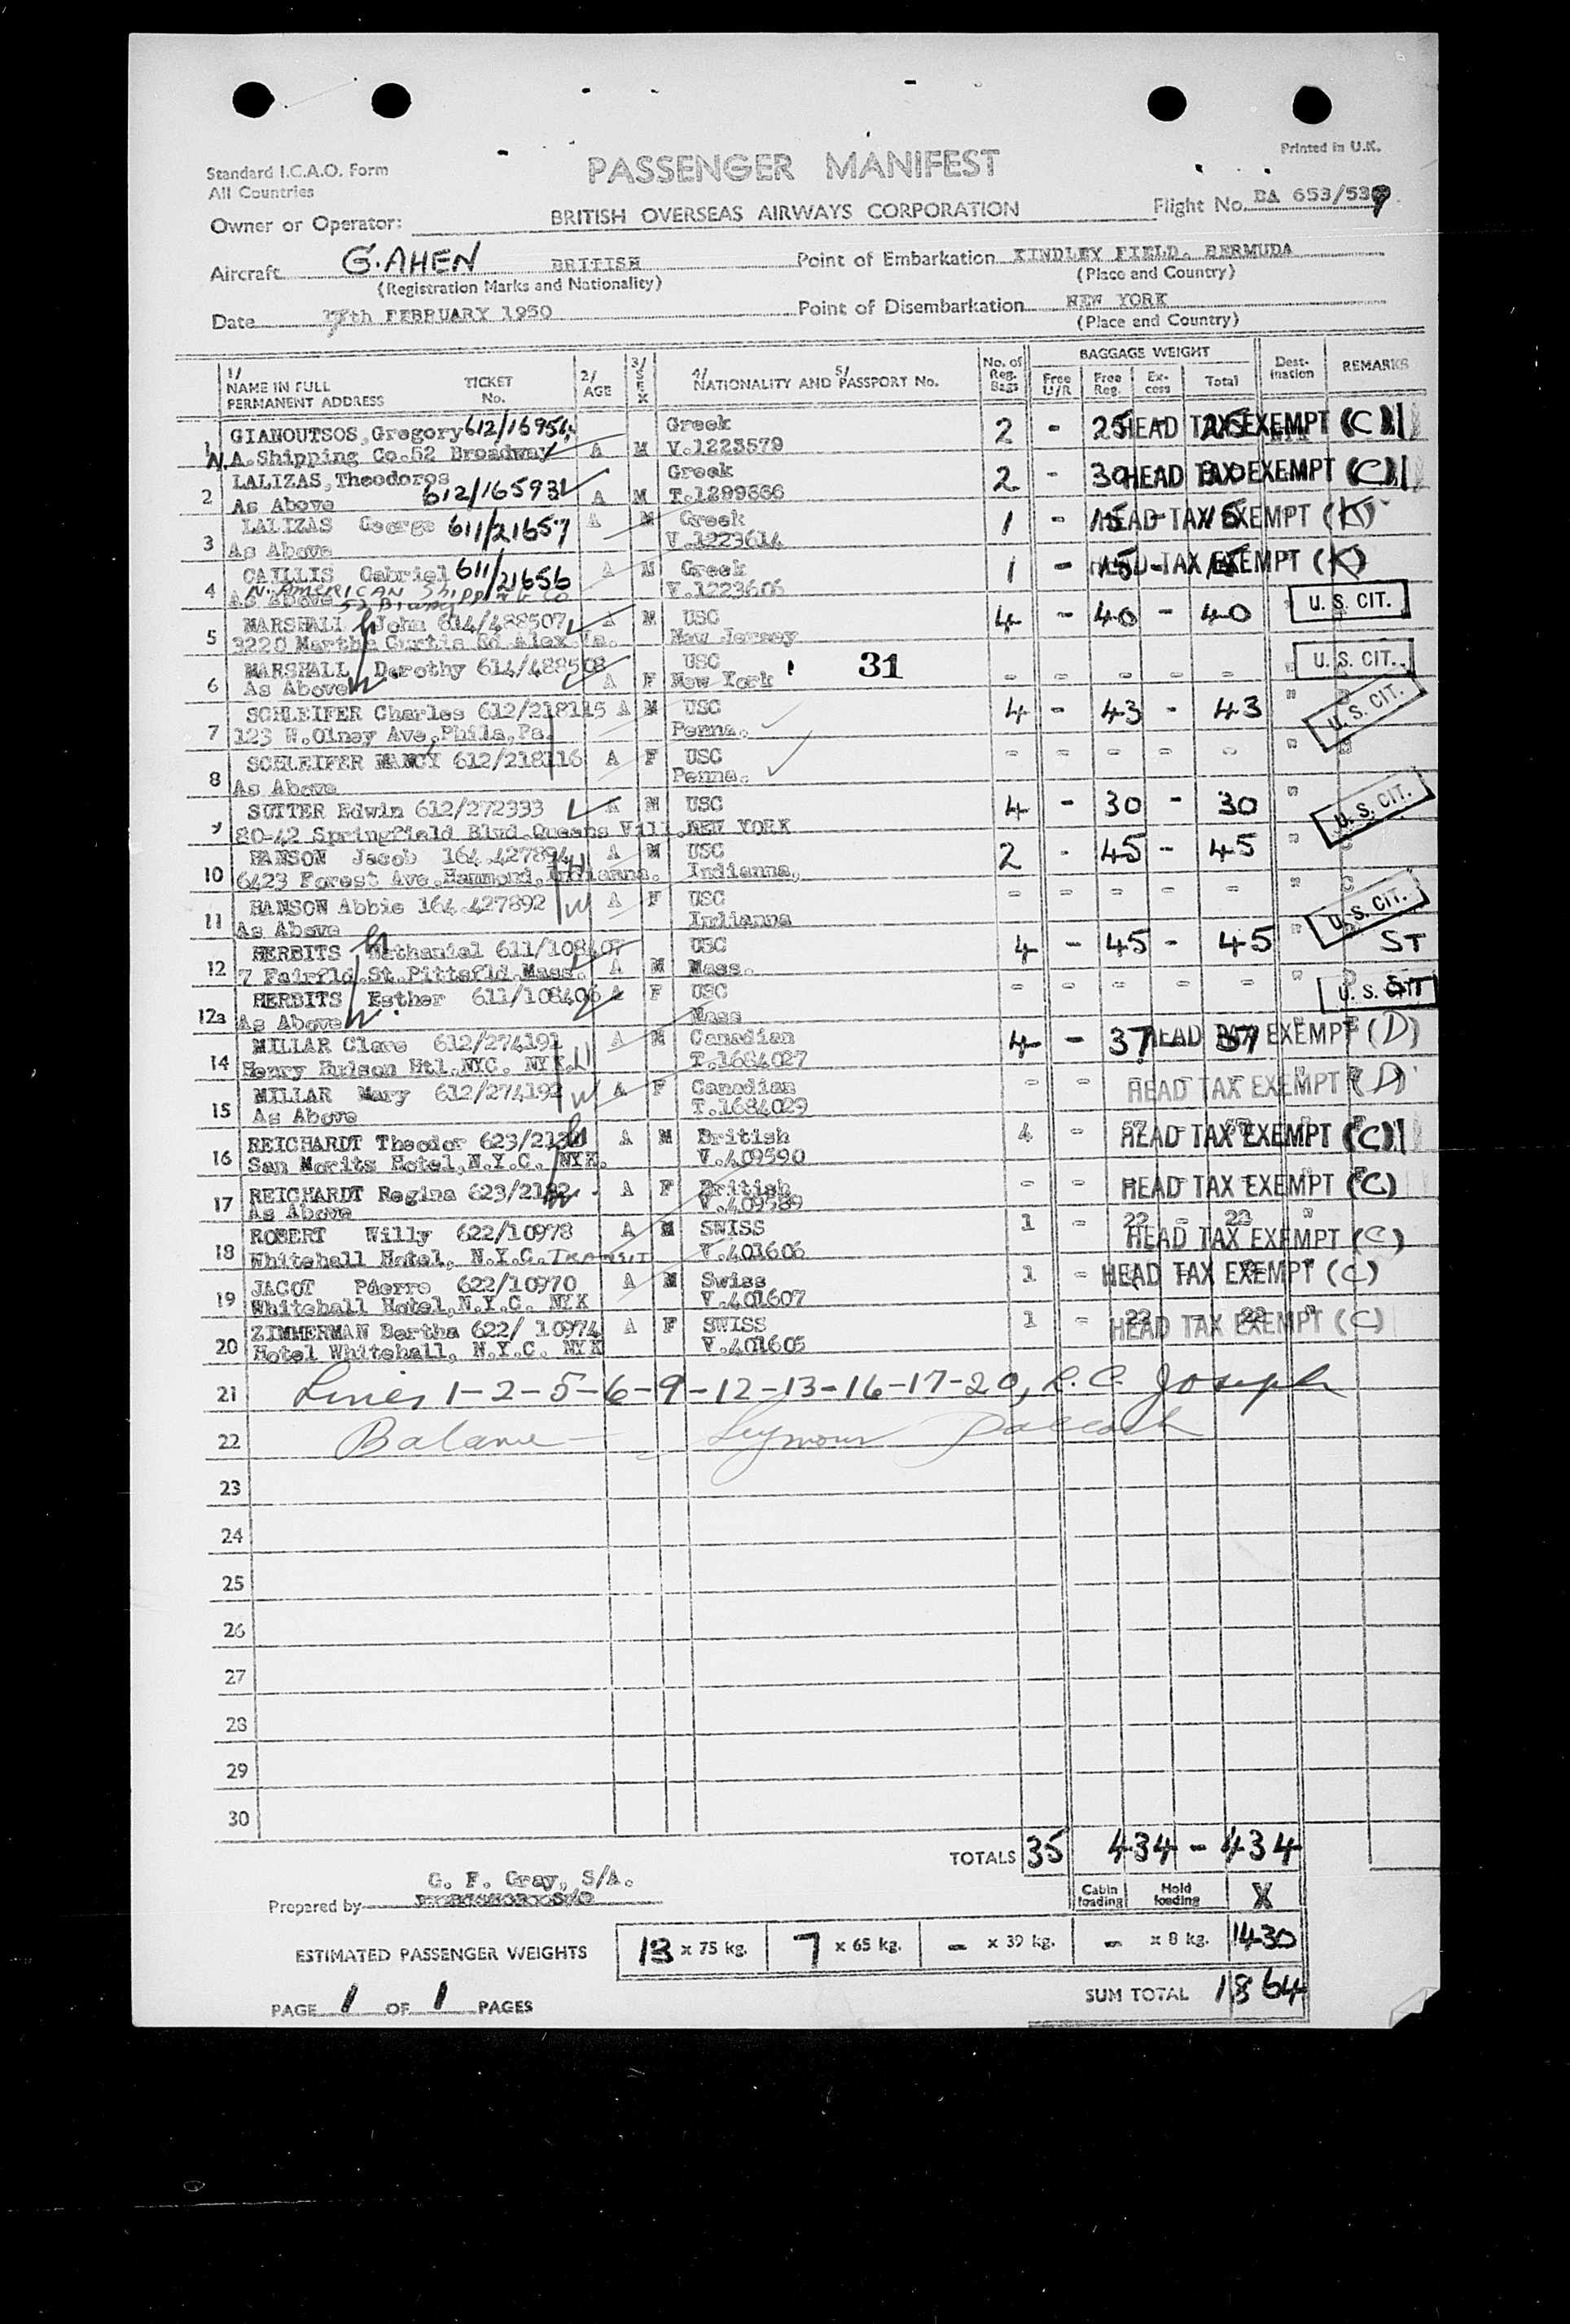 Standard I.C.A.O. Form
All Countries
PASSENGER MANIFEST
Printed in U.K.
Owner or Operator: BRITISH OVERSEAS AIRWAYS CORPORATION Flight No. BA 653/539
Aircraft G.AHEN BRITISH Point of Embarkation KINDLEY FIELD. BERMUDA
(Registration Marks and Nationality) (Place and Country)
Date 17th FEBRUARY 1950 Point of Disembarkation NEW YORK
(Place and Country)
1/ NAME IN FULL PERMANENT ADDRESS TICKET No. 2/ AGE 3/ SEX 4/ 5/ NATIONALITY AND PASSPORT No. No. of Reg. Bags BAGGAGE WEIGHT Free U/R Free Reg. Ex-cess Total Dest-ination REMARKS
1 GIANOUTSOS, Gregory 612/16954 Greek 2 - 25 - 25 HEAD TAX EXEMPT (C)
N.A. Shipping Co. 52 Broadway A M V.1223579
2 LALIZAS, Theodoros Greek 2 - 30 - 30 HEAD TAX EXEMPT (C)
As Above 612/165931 A M T.1299666
3 LALIZAS George 611/21657 A M Greek 1 - 15 - 15 HEAD TAX EXEMPT (K)
As Above V.1223614
4 CAILLIS Gabriel 611/21656 A M Greek 1 - 15 - 15 HEAD TAX EXEMPT (K)
As Above N. AMERICAN SHIPPING CO 52 Bdway V.1223605
5 MARSHALL John 614/488507 A M USC 4 - 40 - 40 U. S. CIT.
3220 Martha Curtis Rd Alex.Va. New Jersey
6 MARSHALL Dorothy 614/488508 USC 31 - - - - - U. S. CIT.
As Above A F New York
7 SCHLEIFER Charles 612/218115 A M USC 4 - 43 - 43 " U. S. CIT.
123 W.Olney Ave, Phila, Pa. Penna.
8 SCHLEIFER NANCY 612/218116 A F USC - - - - - "
As Above Penna.
9 SUTTER Edwin 612/272333 A M USC 4 - 30 - 30 " U. S. CIT.
80-42 Springfield Blvd. Queens Vill. NEW YORK
10 HANSON Jacob 164.427894 A M USC 2 - 45 - 45 "
6423 Forest Ave. Hammond, Indianna. Indianna.
11 HANSON Abbie 164.427892 A F USC - - - - - " U. S. CIT.
As Above Indianna
12 HERBITS Nathaniel 611/108407 USC 4 - 45 - 45 " ST
7 Fairfld. St. Pittsfld. Mass. A M Mass.
12a HERBITS Esther 611/108406 A F USC - - - - - " U. S. CIT
As Above Mass
14 MILLAR Clare 612/274191 A M Canadian 4 - 37 - 37 HEAD TAX EXEMPT (D)
Henry Hudson Htl. NYC. NYK. T.1684027
15 MILLAR Mary 612/274192 A F Canadian - - HEAD TAX EXEMPT (D)
As Above T.1684029
16 REICHARDT Theodor A M British 4 - HEAD TAX EXEMPT (C)
San Moritz Hotel, N.Y.C. NYK. V.409590
17 REICHARDT Regina 623/2182 A F British - - HEAD TAX EXEMPT (C)
As Above V.409589
18 ROBERT Willy 622/10978 A M SWISS 1 - 22 - 22 " HEAD TAX EXEMPT (C)
Whitehall Hotel, N.Y.C. TRANSIT V.401606
19 JACOT Pierre 622/10970 A M Swiss 1 - HEAD TAX EXEMPT (C)
Whitehall Hotel, N.Y.C. NYK V.401607
20 ZIMMERMAN Bertha 622/ 10974 A F SWISS 1 - 22 - 22 " HEAD TAX EXEMPT (C)
Hotel Whitehall, N.Y.C. NYK V.401605
21 Lines 1-2-5-6-9-12-13-16-17-20, L.C. Joseph
22 Balance - Seymour
23
24
25
26
27
28
29
30
TOTALS 35 434 - 434
C. F. Gray, S/A.
Prepared by
Cabin loading Hold loading X
ESTIMATED PASSENGER WEIGHTS 13 x 75 kg. 7 x 65 kg. - x 39 kg. - x 8 kg. 1430
PAGE 1 OF 1 PAGES SUM TOTAL 1864